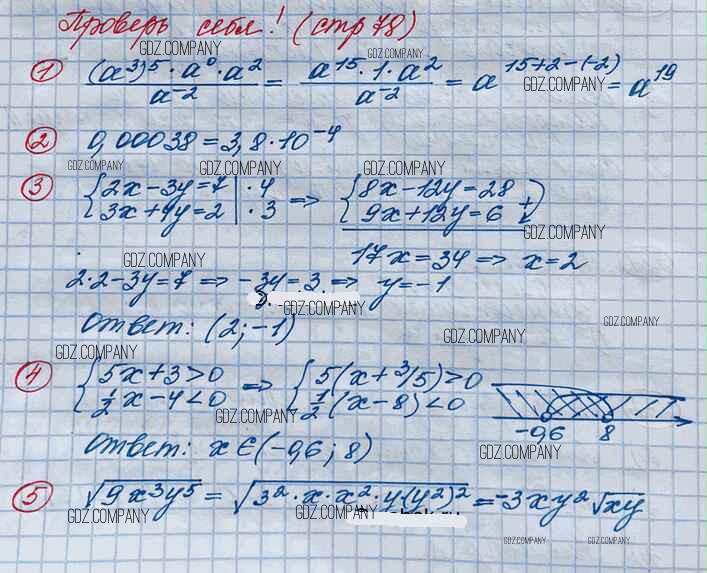 Проверь себя! (стр 78)
GDZ.COMPANY GDZ.COMPANY
① (a³)⁵·a⁰·a² / a⁻² = a¹⁵·1·a² / a⁻² = a¹⁵⁺²⁻⁽⁻²⁾ = a¹⁹
GDZ.COMPANY
② 0,00038 = 3,8·10⁻⁴
GDZ.COMPANY GDZ.COMPANY GDZ.COMPANY
③ { 2x − 3y = 7 | ·4 => { 8x − 12y = 28
3x + 4y = 2 | ·3 9x + 12y = 6 +
GDZ.COMPANY
17x = 34 => x = 2
GDZ.COMPANY
2·2 − 3y = 7 => −3y = 3 => y = −1
GDZ.COMPANY
Ответ: (2; −1)
GDZ.COMPANY GDZ.COMPANY
GDZ.COMPANY
④ { 5x + 3 > 0 => { 5(x + 3/5) > 0
½x − 4 < 0 ½(x − 8) < 0
GDZ.COMPANY
−0,6 8
Ответ: x ∈ (−0,6; 8)
GDZ.COMPANY
⑤ √9x³y⁵ = √3²·x·x²·y(y²)² = −3xy²√xy
GDZ.COMPANY GDZ.COMPANY
GDZ.COMPANY GDZ.COMPANY